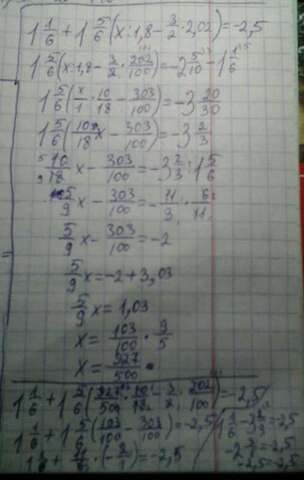 1 1/6 + 1 5/6 (x:1,8 - 3/2 · 2,02) = -2,5
1 5/6 (x:1,8 - 3/2 · 202/100) = -2 5/10 - 1 1/6
1 5/6 (x/1 · 10/18 - 303/100) = -3 20/30
1 5/6 (10/18 x - 303/100) = -3 2/3
10/18 x - 303/100 = -3 2/3 : 1 5/6
5/9 x - 303/100 = -11/3 · 6/11
5/9 x - 303/100 = -2
5/9 x = -2 + 3,03
5/9 x = 1,03
x = 103/100 · 9/5
x = 927/500
1 1/6 + 1 5/6 (927/500 · 10/18 - 3/2 · 202/100) = -2,5
1 1/6 + 1 5/6 (103/100 - 303/100) = -2,5
= -2,5
-2,5 = -2,5